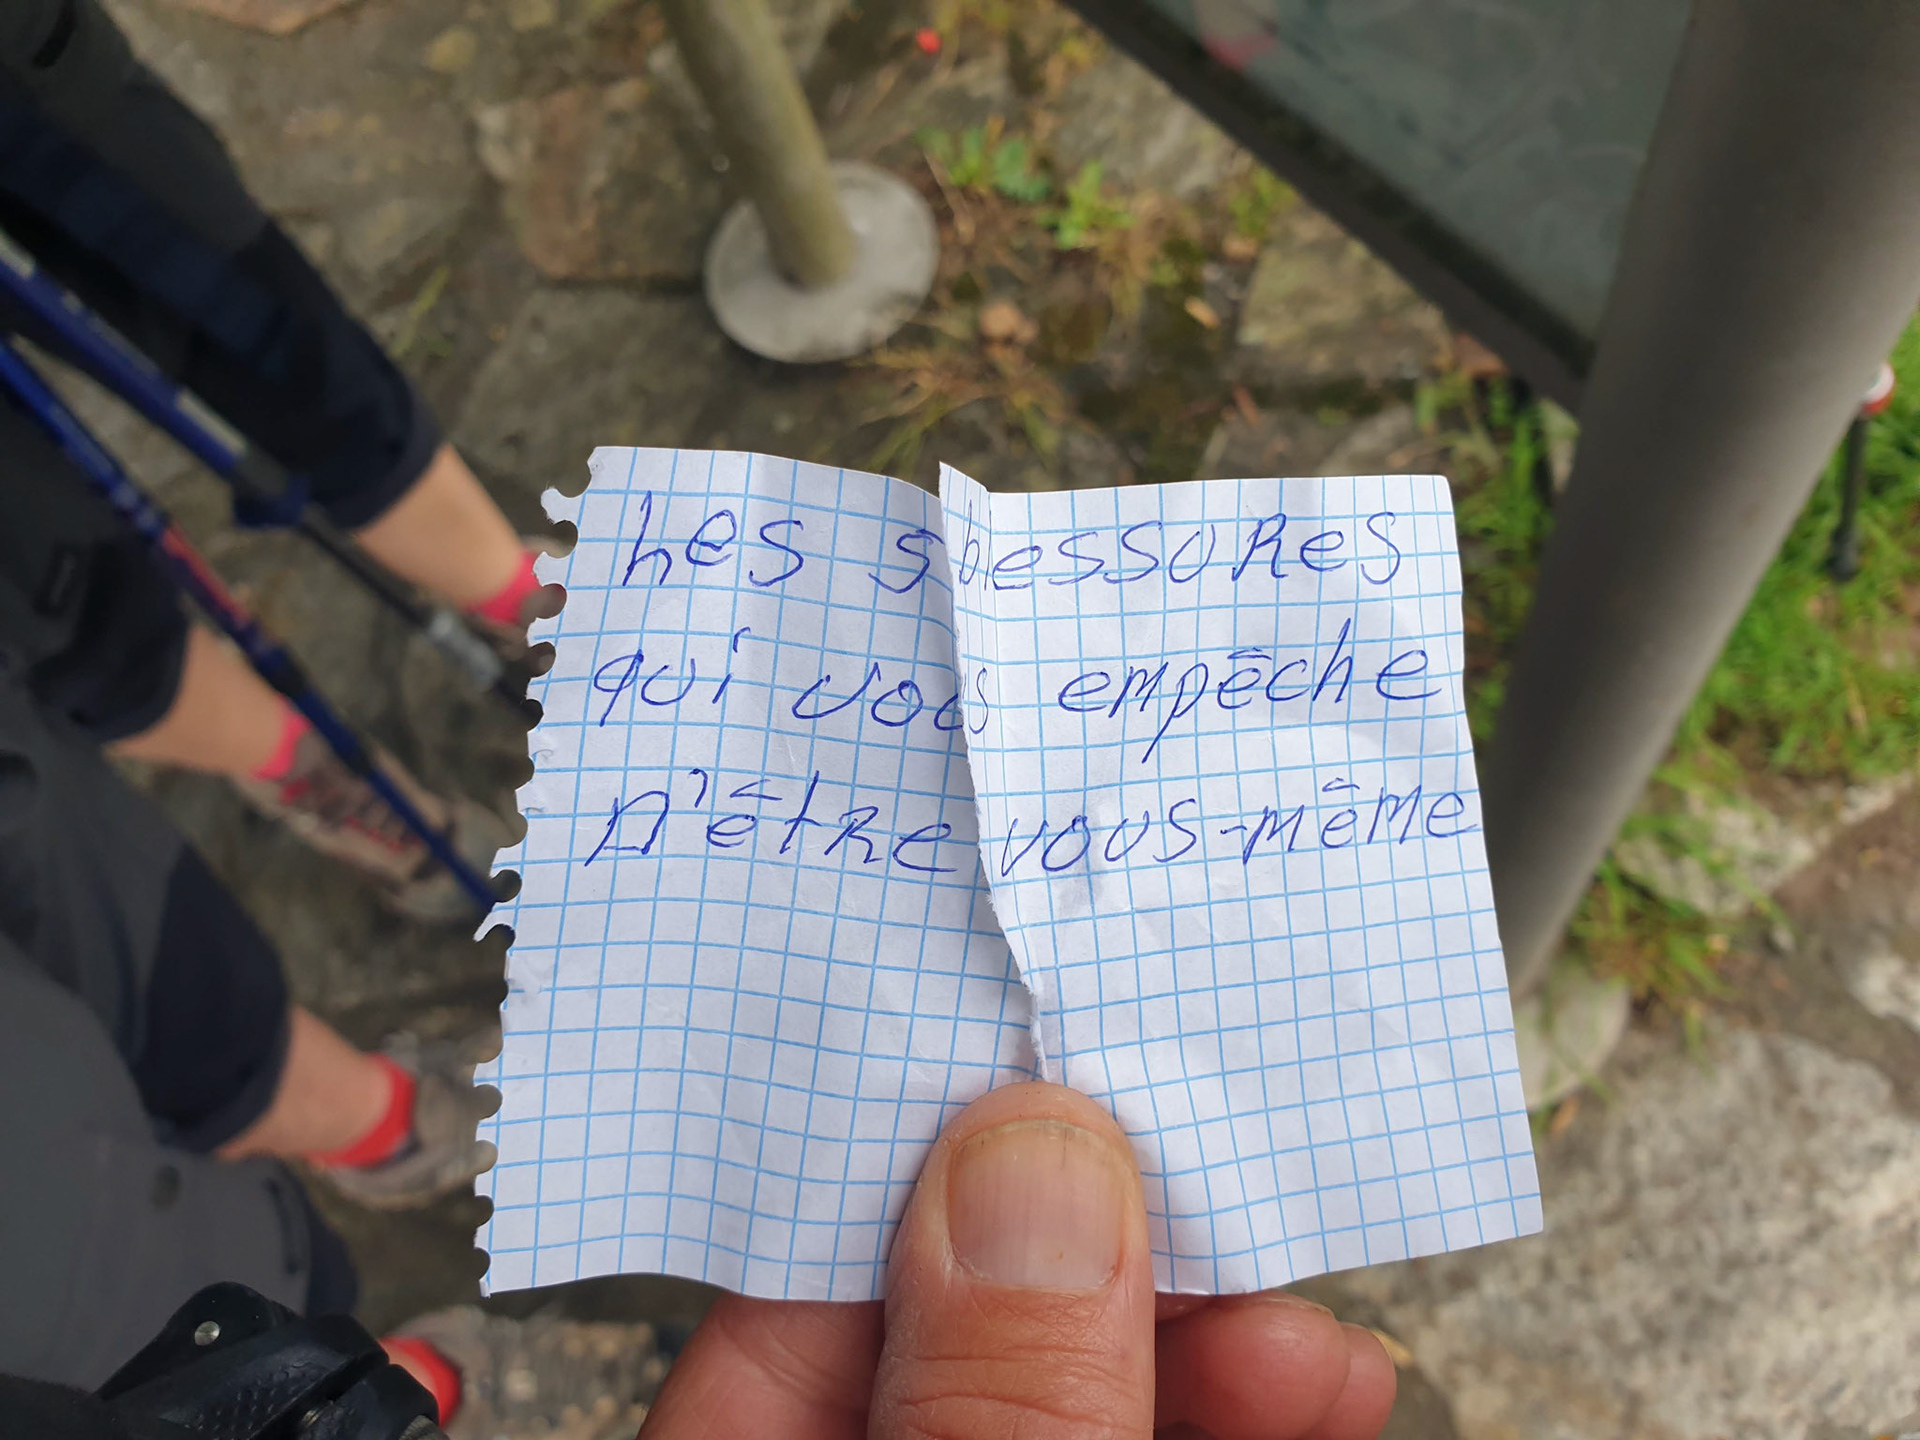 Les 5 blessures
qui vous empêche
D'être vous-même